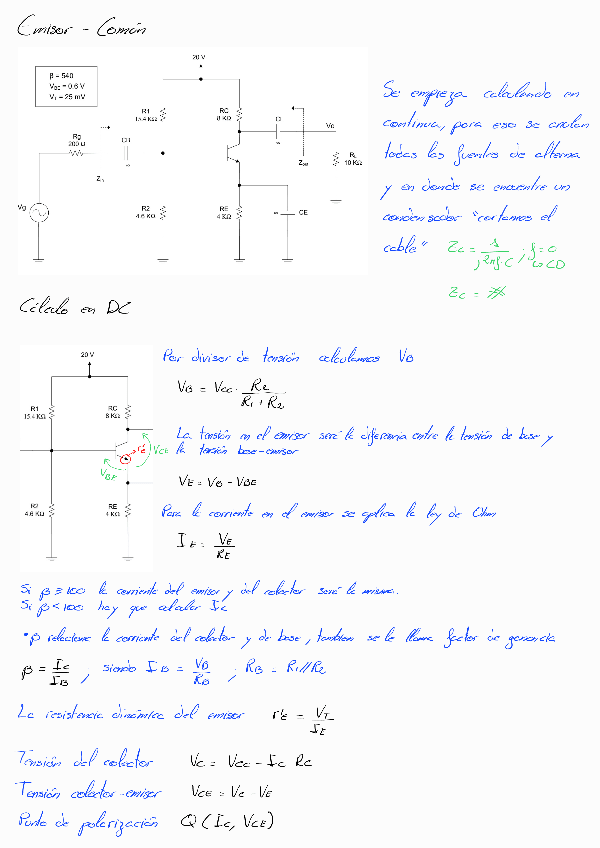 Emisor - Común
20 V
β = 540
VBE = 0.6 V
VT = 25 mV
R1
15.4 KΩ
RC
8 KΩ
CL
Vo
Rg
200 Ω
CB
∞
∞
Zin
Zou
RL
10 KΩ
Vg
R2
4.6 KΩ
RE
4 KΩ
∞
CE
Se empieza calculando en
continua, para eso se anulan
todas las fuentes de alterna
y en donde se encuentre un
condensador "cortamos el
cable" Zc = 1 / j2πf·C ; f = 0
↳ CD
Zc = ∞
Cálculo en DC
20 V
R1
15.4 KΩ
RC
8 KΩ
r'E
VCE
VBE
R2
4.6 KΩ
RE
4 KΩ
Por divisor de tensión calculamos VB
VB = Vcc · R2 / R1 + R2
La tensión en el emisor será la diferencia entre la tensión de base y
la tensión base-emisor
VE = VB - VBE
Para la corriente en el emisor se aplica la ley de Ohm
IE = VE / RE
Si β ≥ 100 la corriente del emisor y del colector será la misma.
Si β < 100 hay que calcular Ic
*β relaciona la corriente del colector y de base, tambien se le llama factor de ganancia
β = Ic / IB ; siendo IB = VB / RB ; RB = R1//R2
La resistencia dinámica del emisor r'E = VT / IE
Tensión del colector Vc = Vcc - Ic Rc
Tensión colector-emisor VCE = Vc - VE
Punto de polarización Q (Ic, VCE)